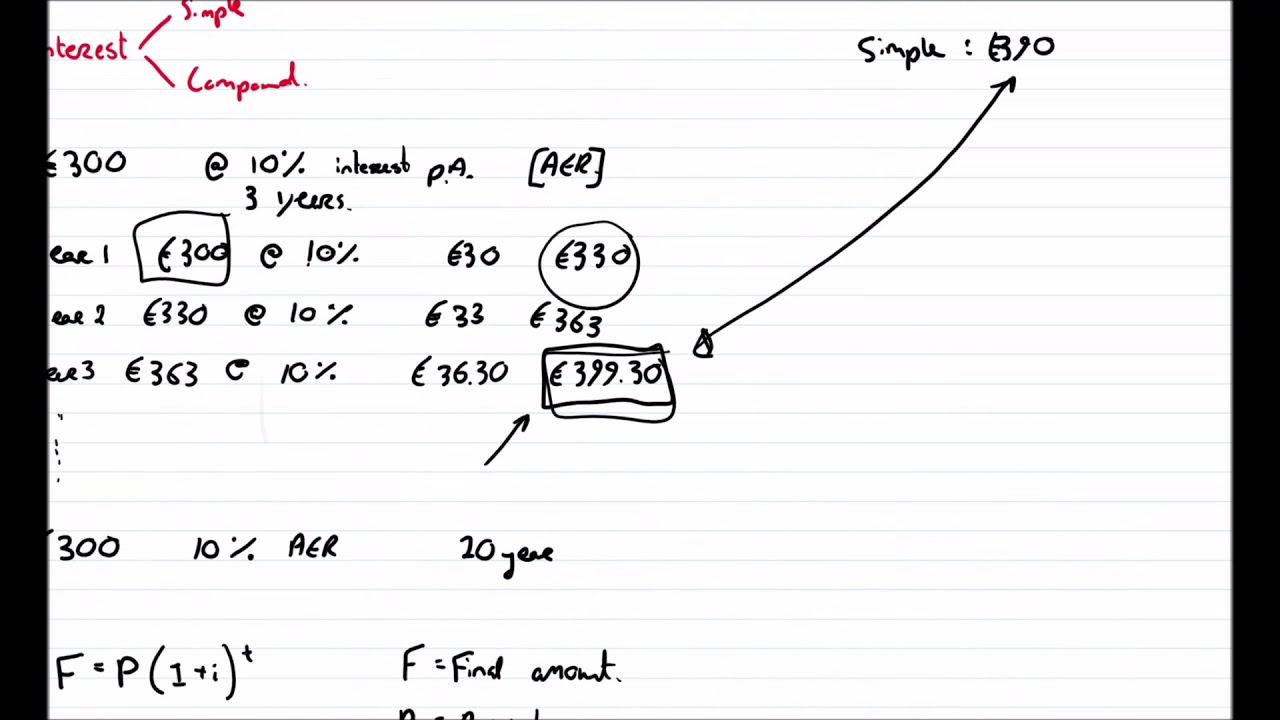 Simple
nterest
Compound.
Simple : €390
€300 @ 10% interest p.A. [AER]
3 years.
ear 1 €300 @ 10% €30 €330
ear 2 €330 @ 10% €33 €363
ear 3 €363 @ 10% €36.30 €399.30
300 10% AER 20 year
F = P(1+i)^t F = Final amount.